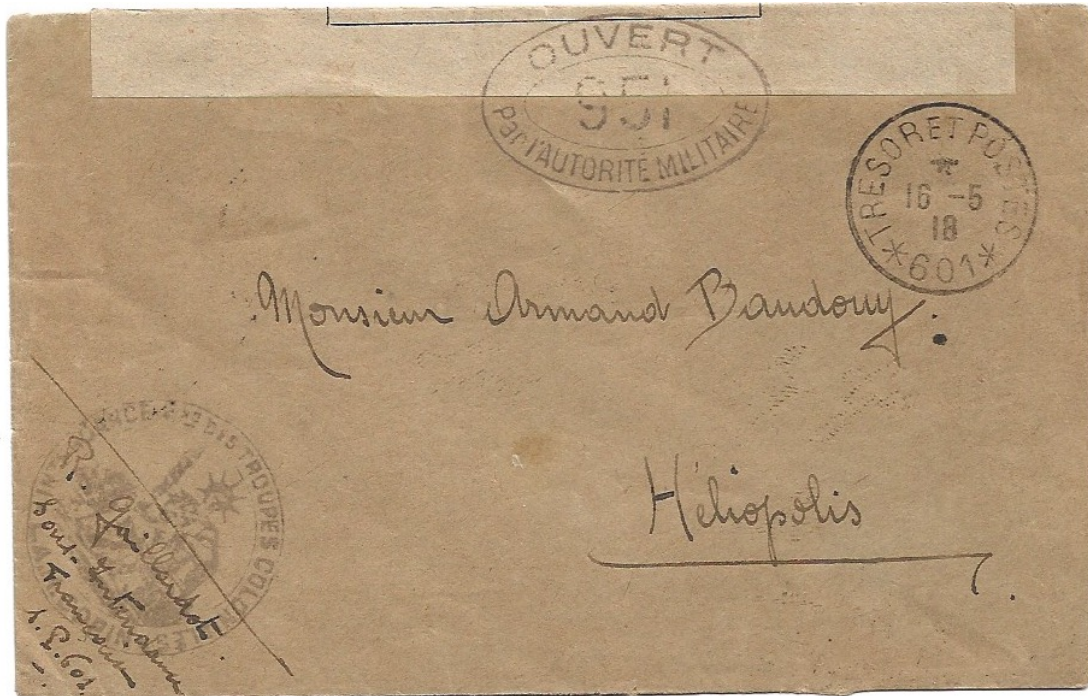 OUVERT
951
Par l'AUTORITÉ MILITAIRE
*TRESOR ET POSTES
*
16 -5
18
*601*
Monsieur Armand Baudouy.
Héliopolis
DES TROUPES COLONIALES
R. Gaillardot
Sous-Intendant
Français
S.P. 601.